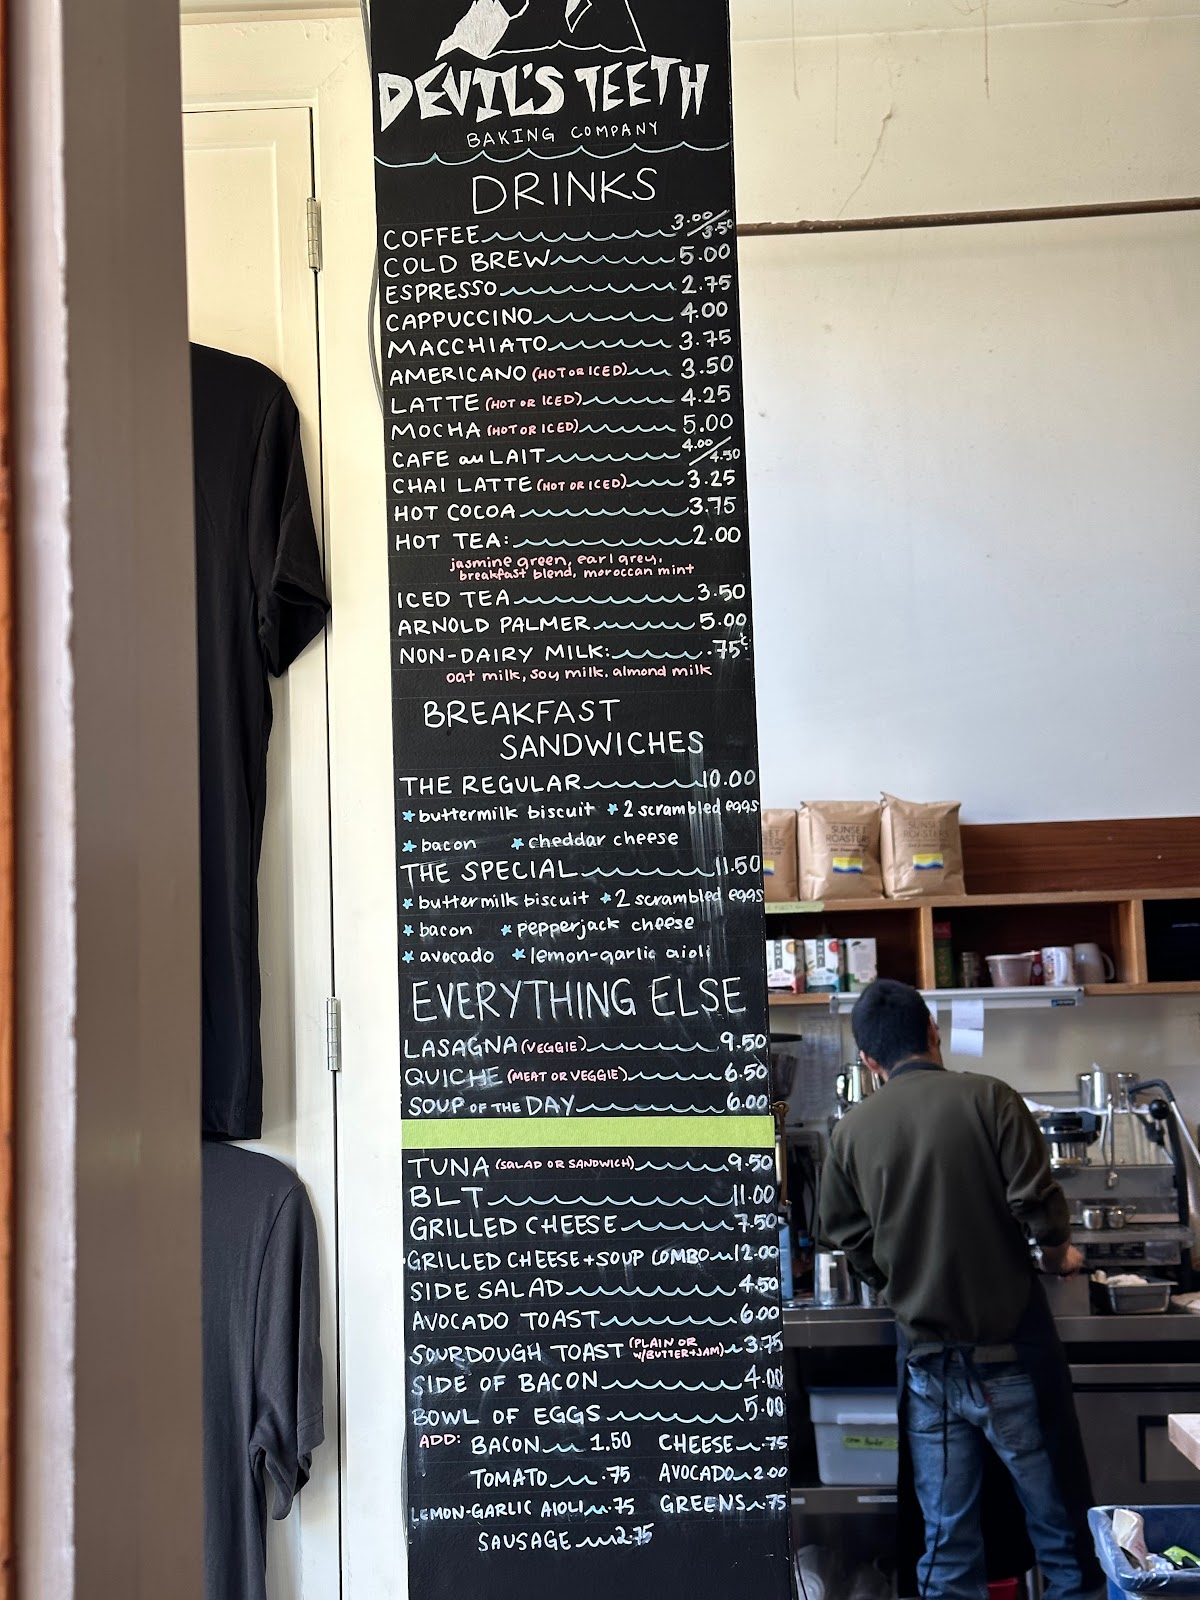 DEVIL'S TEETH
BAKING COMPANY
DRINKS
COFFEE 3.00/3.50
COLD BREW 5.00
ESPRESSO 2.75
CAPPUCCINO 4.00
MACCHIATO 3.75
AMERICANO (HOT OR ICED) 3.50
LATTE (HOT OR ICED) 4.25
MOCHA (HOT OR ICED) 5.00
CAFE au LAIT 4.00/4.50
CHAI LATTE (HOT OR ICED) 3.25
HOT COCOA 3.75
HOT TEA: 2.00
jasmine green, earl grey,
breakfast blend, moroccan mint
ICED TEA 3.50
ARNOLD PALMER 5.00
NON-DAIRY MILK: .75¢
oat milk, soy milk, almond milk
BREAKFAST
SANDWICHES
THE REGULAR 10.00
★ buttermilk biscuit ★ 2 scrambled eggs
★ bacon ★ cheddar cheese
THE SPECIAL 11.50
★ buttermilk biscuit ★ 2 scrambled eggs
★ bacon ★ pepperjack cheese
★ avocado ★ lemon-garlic aioli
EVERYTHING ELSE
LASAGNA (VEGGIE) 9.50
QUICHE (MEAT OR VEGGIE) 6.50
SOUP OF THE DAY 6.00
TUNA (SALAD OR SANDWICH) 9.50
BLT 11.00
GRILLED CHEESE 7.50
GRILLED CHEESE + SOUP COMBO 12.00
SIDE SALAD 4.50
AVOCADO TOAST 6.00
SOURDOUGH TOAST (PLAIN OR W/BUTTER+JAM) 3.75
SIDE OF BACON 4.00
BOWL OF EGGS 5.00
ADD: BACON 1.50 CHEESE .75
TOMATO .75 AVOCADO 2.00
LEMON-GARLIC AIOLI .75 GREENS .75
SAUSAGE 2.75
SUNSET
ROASTERS
SUNSET
ROASTERS